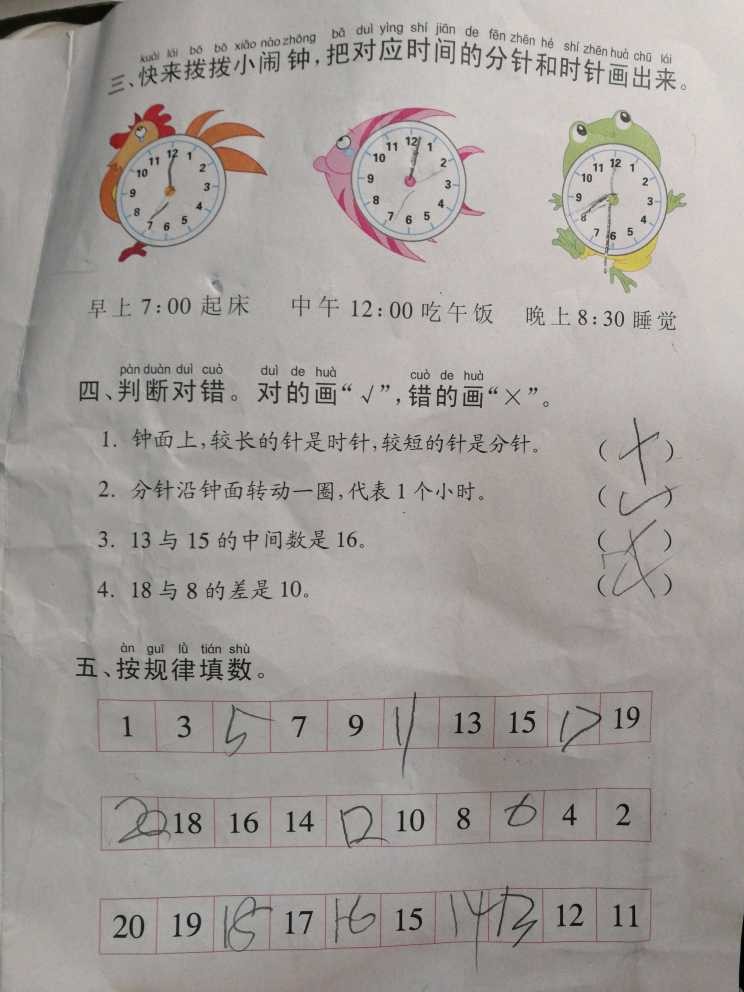 kuài lái bō bō xiǎo nào zhōng bǎ duì yìng shí jiān de fēn zhēn hé shí zhēn huà chū lái
三、快来拨拨小闹钟,把对应时间的分针和时针画出来。
12 1 2 3 4 5 6 7 8 9 10 11
12 1 2 3 4 5 6 7 8 9 10 11
12 1 2 3 4 5 6 7 8 9 10 11
早上 7:00 起床 中午 12:00 吃午饭 晚上 8:30 睡觉
pàn duàn duì cuò duì de huà cuò de huà
四、判断对错。对的画“√”,错的画“×”。
1. 钟面上,较长的针是时针,较短的针是分针。 (×)
2. 分针沿钟面转动一圈,代表 1 个小时。 (√)
3. 13 与 15 的中间数是 16。 (×)
4. 18 与 8 的差是 10。 ( )
àn guī lǜ tián shù
五、按规律填数。
1 3 5 7 9 11 13 15 17 19
20 18 16 14 12 10 8 6 4 2
20 19 18 17 16 15 14 13 12 11